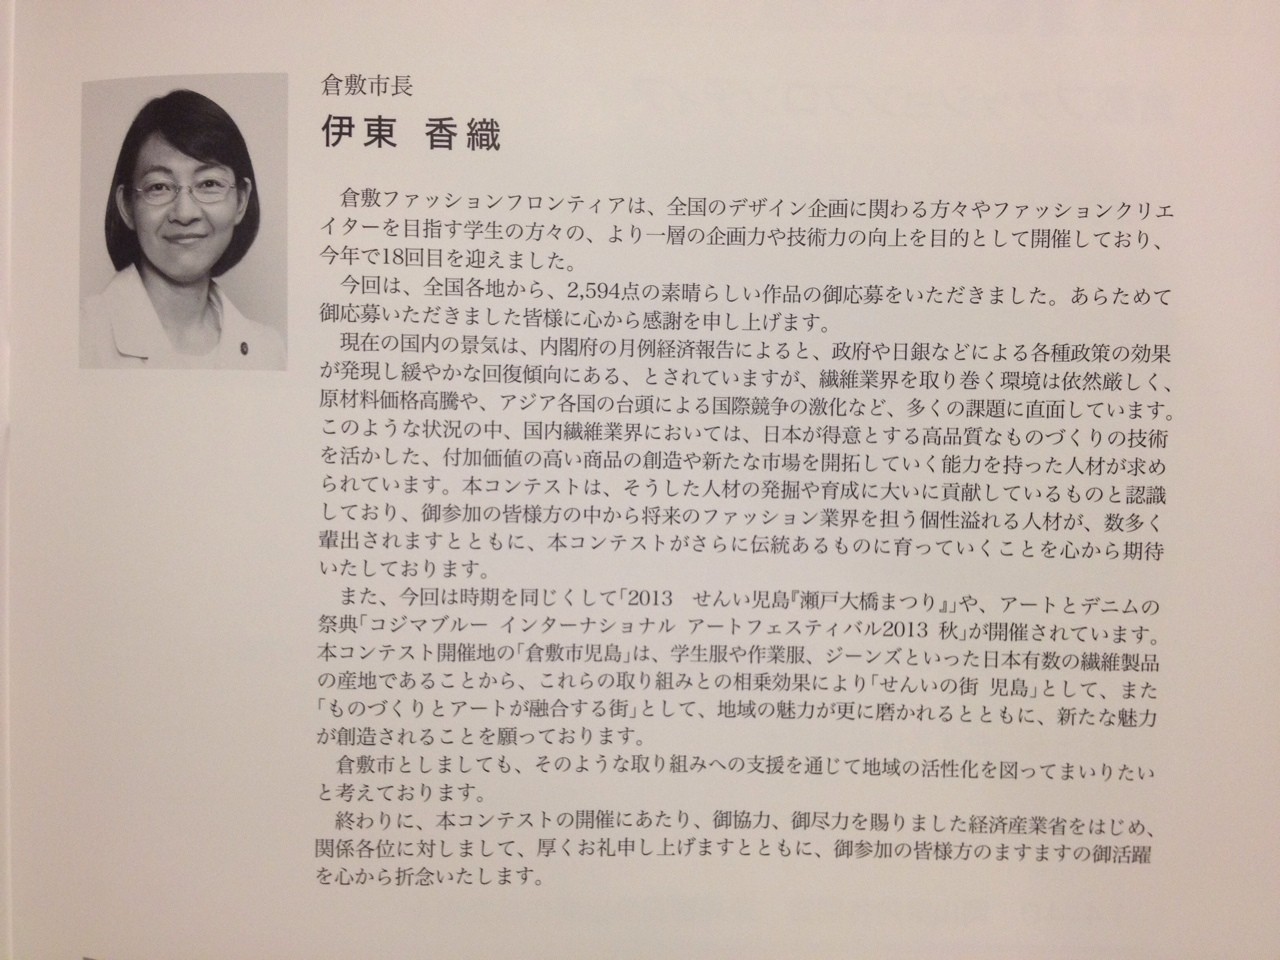 倉敷市長
伊東 香織
倉敷ファッションフロンティアは、全国のデザイン企画に関わる方々やファッションクリエ
イターを目指す学生の方々の、より一層の企画力や技術力の向上を目的として開催しており、
今年で18回目を迎えました。
今回は、全国各地から、2,594点の素晴らしい作品の御応募をいただきました。あらためて
御応募いただきました皆様に心から感謝を申し上げます。
現在の国内の景気は、内閣府の月例経済報告によると、政府や日銀などによる各種政策の効果
が発現し緩やかな回復傾向にある、とされていますが、繊維業界を取り巻く環境は依然厳しく、
原材料価格高騰や、アジア各国の台頭による国際競争の激化など、多くの課題に直面しています。
このような状況の中、国内繊維業界においては、日本が得意とする高品質なものづくりの技術
を活かした、付加価値の高い商品の創造や新たな市場を開拓していく能力を持った人材が求め
られています。本コンテストは、そうした人材の発掘や育成に大いに貢献しているものと認識
しており、御参加の皆様方の中から将来のファッション業界を担う個性溢れる人材が、数多く
輩出されますとともに、本コンテストがさらに伝統あるものに育っていくことを心から期待
いたしております。
また、今回は時期を同じくして「2013 せんい児島『瀬戸大橋まつり』」や、アートとデニムの
祭典「コジマブルー インターナショナル アートフェスティバル2013 秋」が開催されています。
本コンテスト開催地の「倉敷市児島」は、学生服や作業服、ジーンズといった日本有数の繊維製品
の産地であることから、これらの取り組みとの相乗効果により「せんいの街 児島」として、また
「ものづくりとアートが融合する街」として、地域の魅力が更に磨かれるとともに、新たな魅力
が創造されることを願っております。
倉敷市としましても、そのような取り組みへの支援を通じて地域の活性化を図ってまいりたい
と考えております。
終わりに、本コンテストの開催にあたり、御協力、御尽力を賜りました経済産業省をはじめ、
関係各位に対しまして、厚くお礼申し上げますとともに、御参加の皆様方のますますの御活躍
を心から祈念いたします。